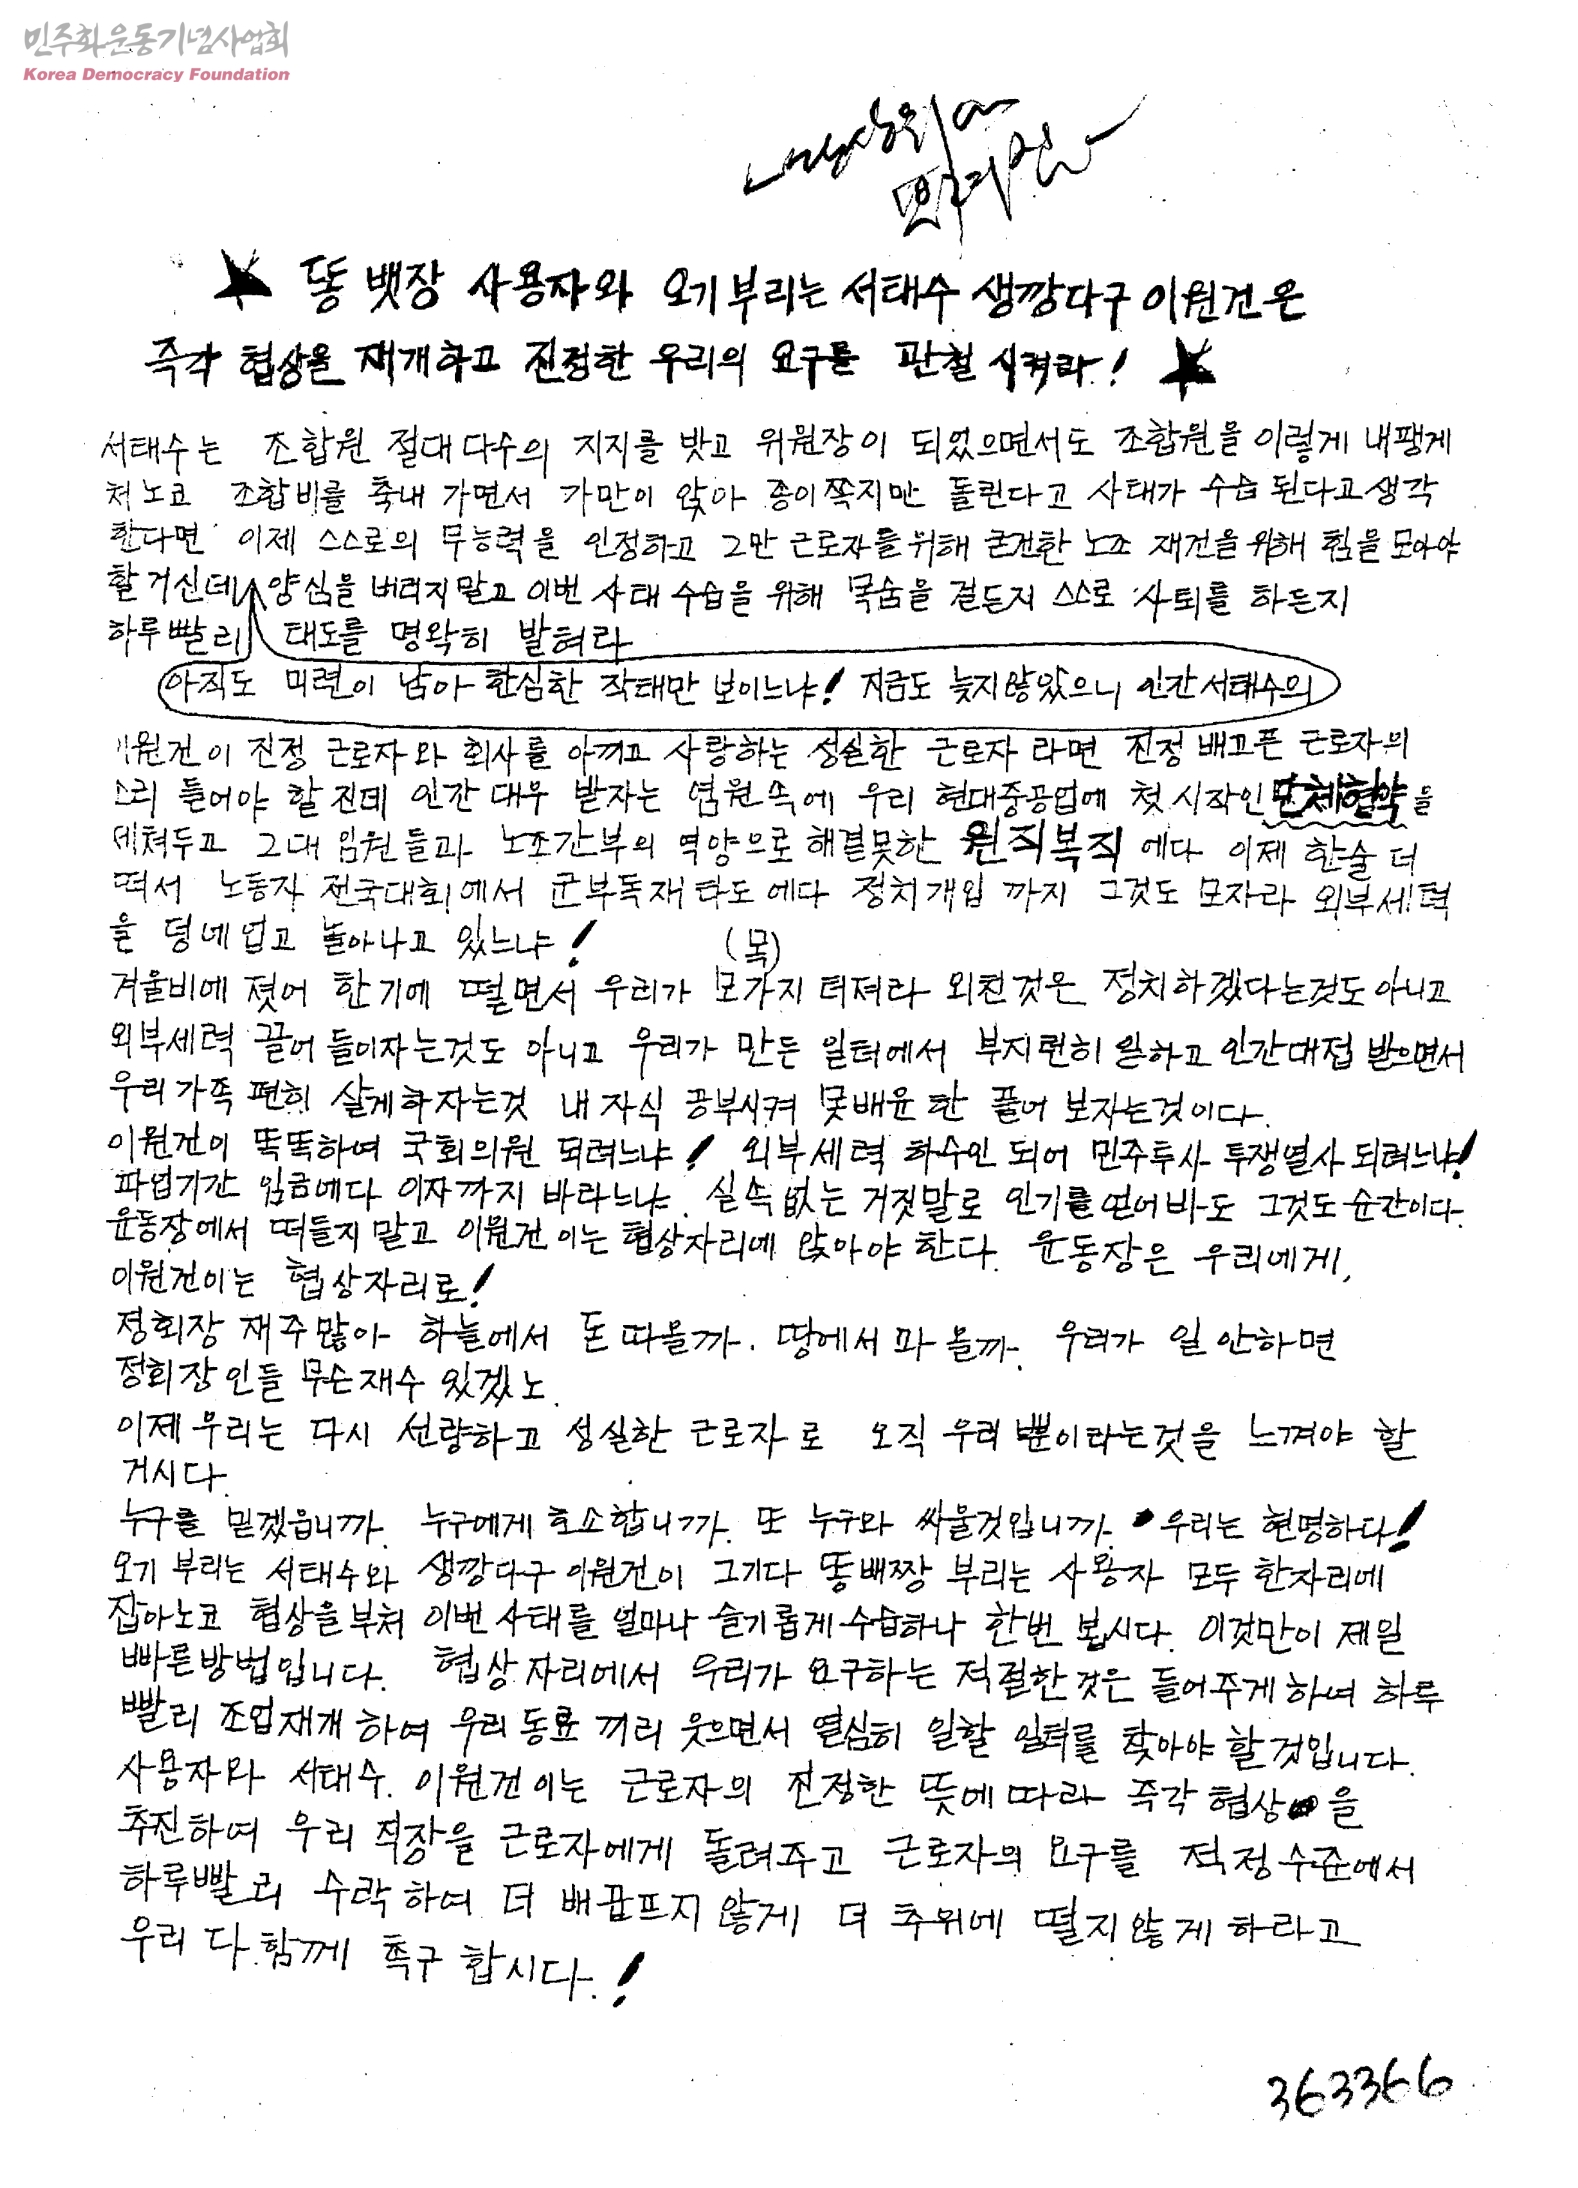 민주화운동기념사업회
Korea Democracy Foundation
★ 똥 뱃장 사용자와 오기부리는 서태수 생깡다구 이원건은
즉각 협상을 재개하고 진정한 우리의 요구를 관철 시켜라! ★
서태수는 조합원 절대다수의 지지를 밧고 위원장이 되었으면서도 조합원을 이렇게 내팽게
쳐노코 조합비를 축내 가면서 가만이 앉아 종이쪽지만 돌린다고 사태가 수습 된다고생각
한다면 이제 스스로의 무능력을 인정하고 그만 근로자를위해 굳건한 노조 재건을 위해 힘을 모아야
할거신데 양심을 버리지말고 이번 사태 수습을 위해 목숨을 걸든지 스스로 사퇴를 하든지
하루빨리 태도를 명확히 발혀라
아직도 미련이 남아 한심한 작태만 보이느냐! 지금도 늦지않았으니 인간서태수의
이원건이 진정 근로자와 회사를 아끼고 사랑하는 성실한 근로자 라면 진정 배고픈 근로자의
소리 들어야 할진데 인간 대우 받자는 염원속에 우리 현대중공업에 첫 시작인 단체협약을
제쳐두고 그대 임원들과 노조간부의 역양으로 해결못한 원직복직 에다 이제 한술 더
떠서 노동자 전국대회에서 군부독재타도에다 정치개입 까지 그것도 모자라 외부세력
을 덩에업고 놀아나고 있느냐!
(목)
겨울비에 젓어 한기에 떨면서 우리가 모가지 터져라 외친것은 정치하겠다는것도아니고
외부세력 끌어들이자는것도 아니고 우리가 만든 일터에서 부지런히 일하고 인간대접 받으면서
우리가족 편히 살게하자는것 내자식 공부시켜 못배운 한 풀어 보자는것이다.
이원건이 똑똑하여 국회의원 되려느냐! 외부세력 하수인 되어 민주투사 투쟁열사되려느냐!
파업기간 임금에다 이자까지 바라느냐. 실속없는 거짓말로 인기를얻어바도 그것도 순간이다.
운동장에서 떠들지말고 이원건이는 협상자리에 앉아야 한다. 운동장은 우리에게,
이원건이는 협상자리로!
정회장 재주많아 하늘에서 돈 따올까. 땅에서 파 올까. 우리가 일 안하면
정회장인들 무슨재수 있겠노.
이제 우리는 다시 선량하고 성실한 근로자로 오직 우리뿐이라는것을 느껴야 할
거시다.
누구를 믿겠읍니까. 누구에게호소합니까. 또 누구와 싸울것입니까. 우리는 현명하다!
오기 부리는 서태수와 생깡다구 이원건이 그기다 똥배짱 부리는 사용자 모두 한자리에
잡아노코 협상을부쳐 이번 사태를 얼마나 슬기롭게수습하나 한번 봅시다. 이것만이 제일
빠른방법입니다. 협상자리에서 우리가 요구하는 적절한것은 들어주게하여 하루
빨리 조업재개하여 우리동료끼리 웃으면서 열심히 일할 일터를 찾아야할것입니다.
사용자와 서태수. 이원건이는 근로자의 진정한 뜻에따라 즉각 협상을
추진하여 우리 직장을 근로자에게 돌려주고 근로자의 요구를 적정수준에서
하루빨리 수락하여 더 배곺프지 않게 더 추위에 떨지않게하라고
우리 다 함께 촉구 합시다.!
363366